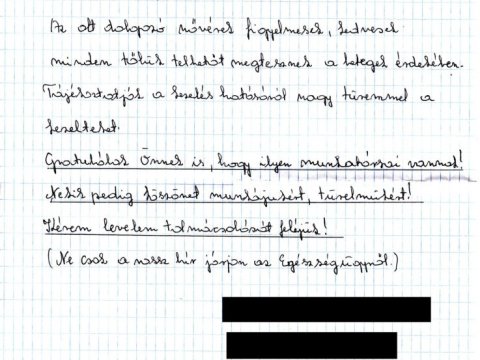 Az ott dolgozó nővérek figyelmesek, kedvesek
minden tőlük telhetőt megtesznek a betegek érdekében.
Tájékoztatják a kezelés hatásáról nagy türemmel a
kezelteket.
Gratulálok Önnek is, hogy ilyen munkatársai vannak!
Nekik pedig köszönet munkájukért, türelmükért!
Kérem levelem tolmácsolását feléjük!
(Ne csak a rossz hír járjon az Egészségügyről.)